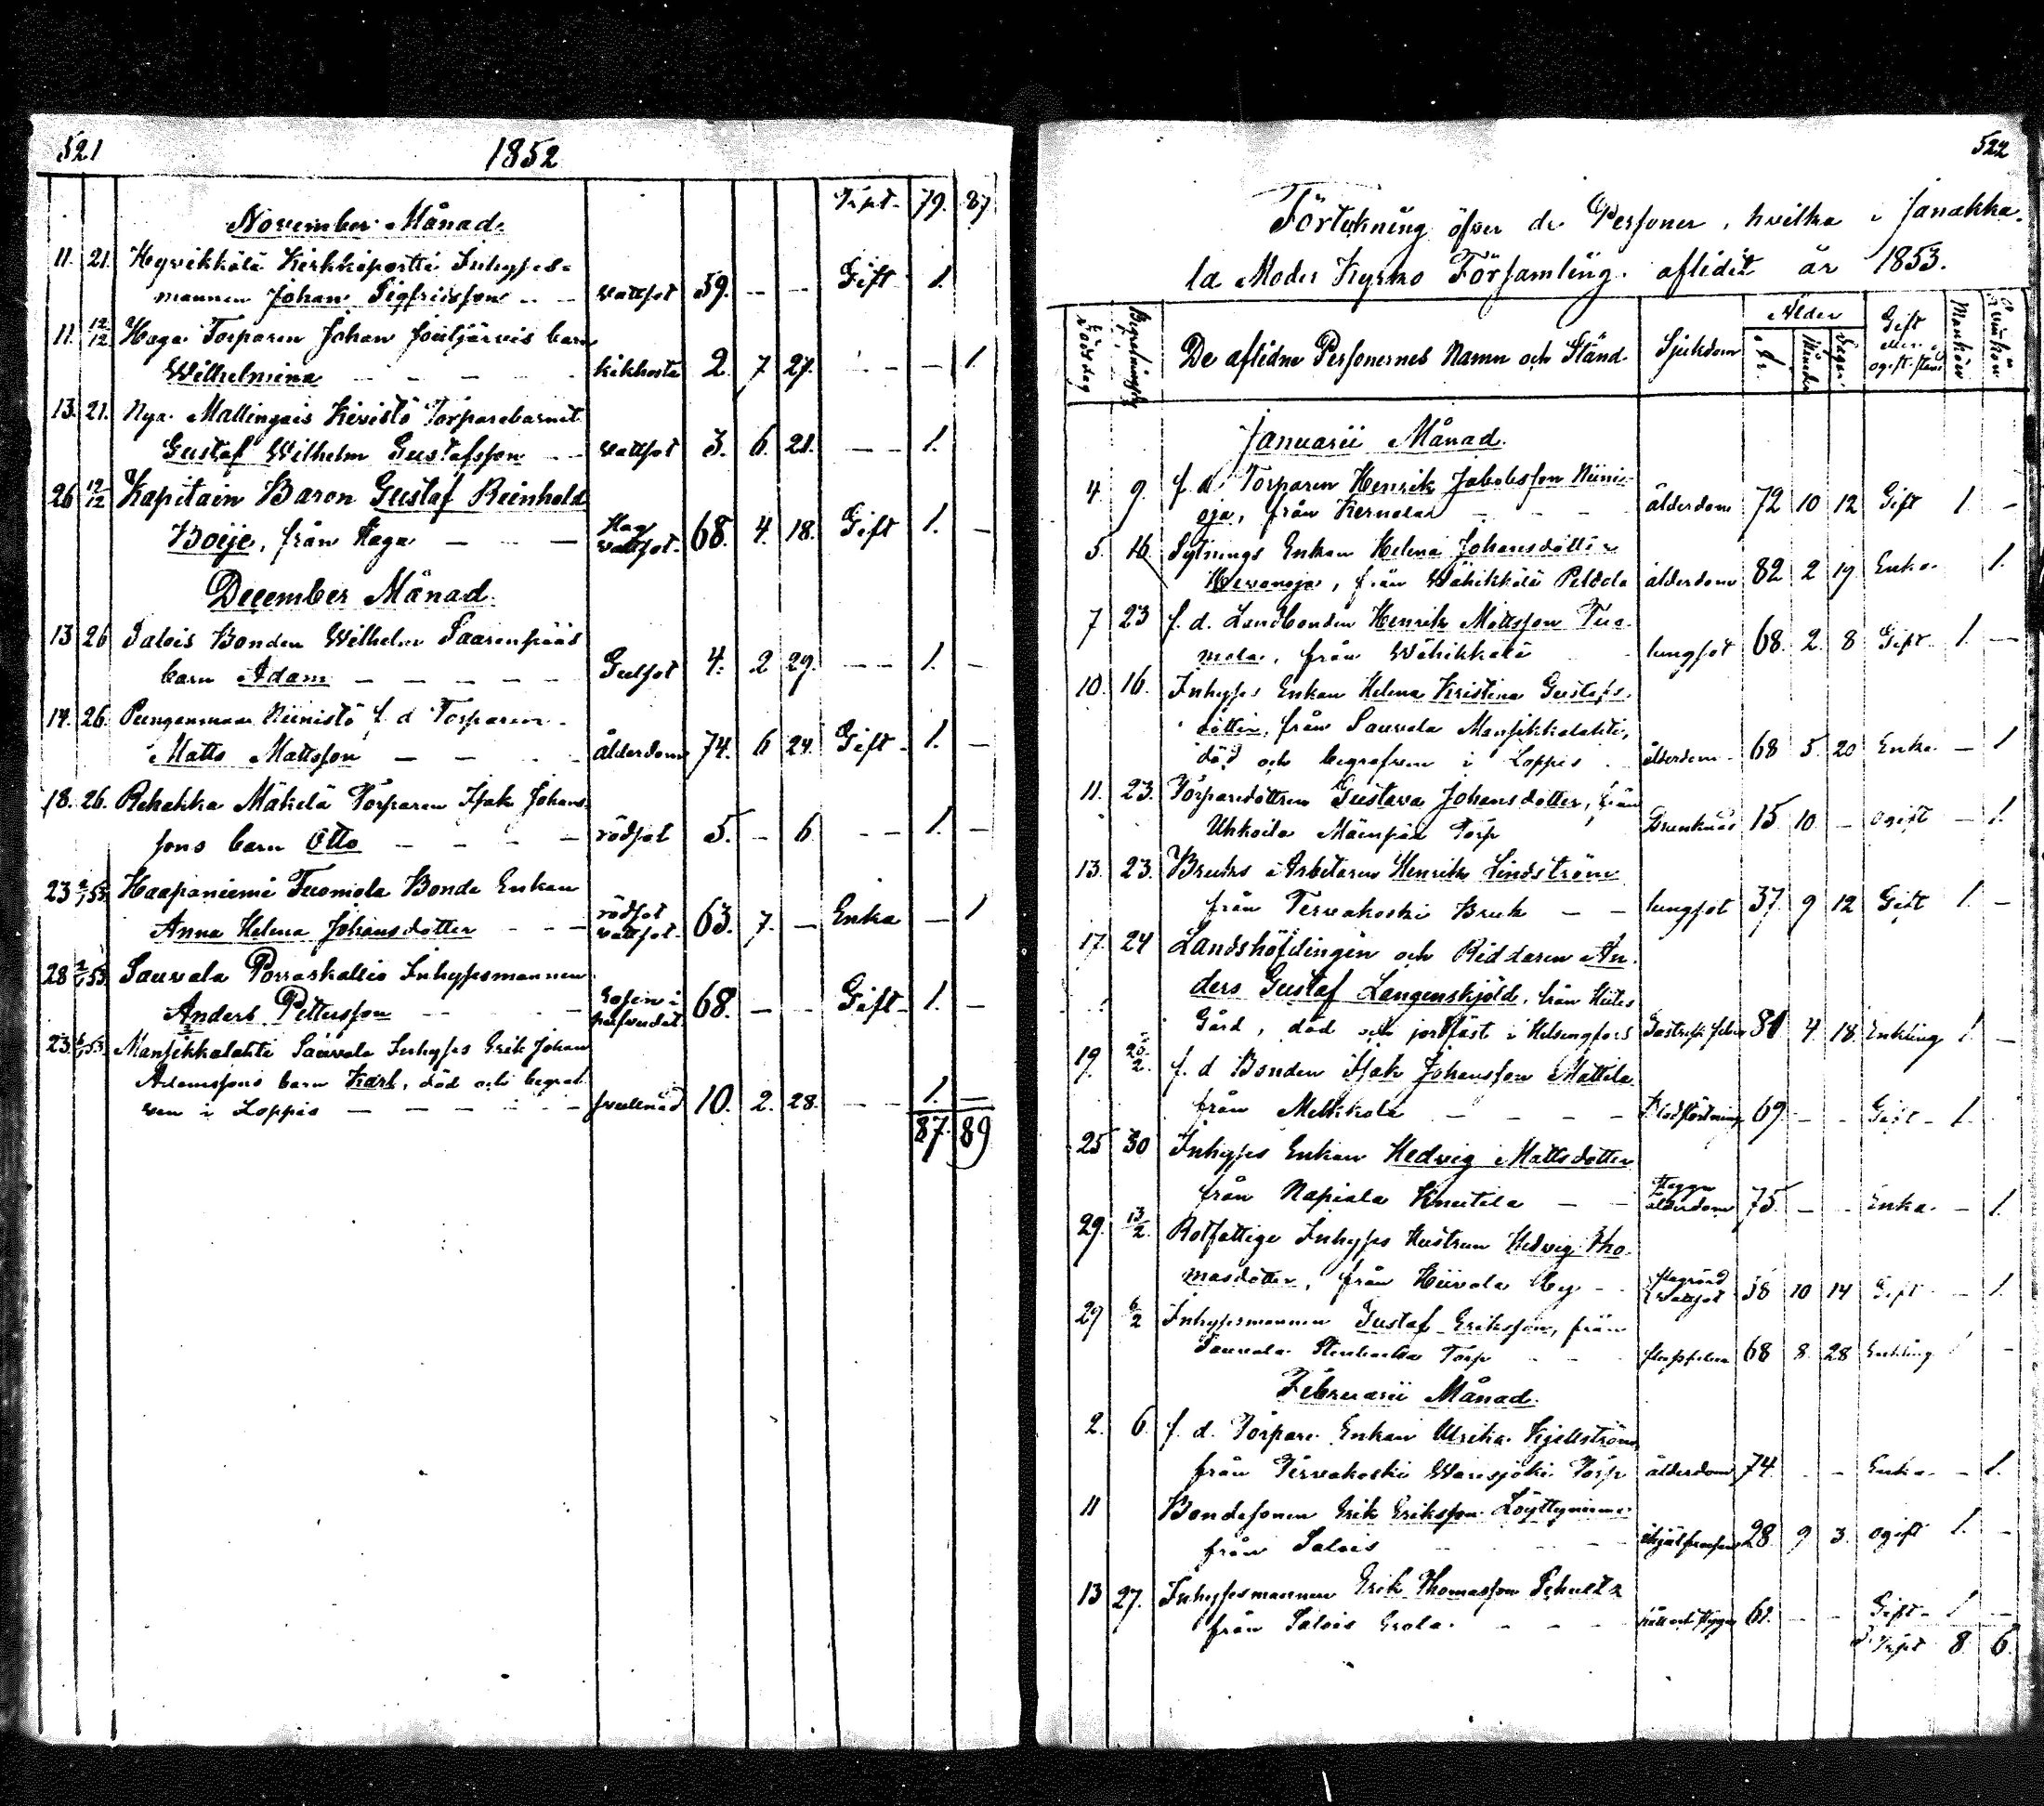 521
1852
Trpt. 79. 87
November Månad.
11. 21. Hyvikkälä Kirkkoportti Inhyses-
mannen Johan Sigfridsson vattsot 59. - - Gift 1.
11. 12/12 Haga Torparen Johan barn
Wilhelmina - - - kikhosta 2. 7 27. - - - 1.
13. 21. Nya Mallingais Kivistö Torparebarnet
Gustaf Wilhelm Gustafsson - - vattsot 3. 6. 21. - - 1.
26 12/12 Kapitain Baron Gustaf Reinhold
Boije, från Haga - - - vattsot. 68. 4. 18. Gift 1. -
December Månad.
13 26 Salois Bonden Wilhelm Saarenpääs
barn Adam - - - - - Gulsot 4. 2 29. - - 1. -
14. 26. Pungamaa Niinistö f. d. Torparen
Matts Mattsson - - - ålderdom 74. 6 24. Gift - 1. -
18. 26. Rehakka Mäkelä Torparen Isak Johans-
sons barn Otto - - - - rödsot 5. - 6 - - 1. -
23 2/1 53. Haapaniemi Tuomola Bonde Enkan
Anna Helena Johansdotter - - - rödsot vattsot. 63. 7. - Enka - 1
28 2/1 53. Sauvala Porraskallio Inhysesmannen
Anders Pettersson - - 68. - - Gift - 1. -
23. 53. Mansikkalahti Sauvala Inhyses Erik Johan
Adamssons barn Karl, död och begraf-
ven i Loppis - - - - - 10. 2. 28. - - 1. -
87. 89
522
Förtekning öfver de Personer, hvilka i Janakka-
la Moder Kyrko Församling aflidit år 1853.
Dödsdag Begrafningsdag De aflidne Personernes Namn och Stånd. Sjukdom Ålder År. Månader Dagar Gift eller ogift stånd Mankön Qvinkön
Januarii Månad.
4 9. f. d. Torparen Henrik Jakobsson Niini-
oja, från Kernalar - - - ålderdom 72 10 12 Gift 1. -
5. 16. Sytnings Enkan Helena Johansdotter
Hevonoja, från Wähikkälä Peldola ålderdom 82 2 19 Enka. 1.
7 23 f. d. Landbonden Henrik Mattsson Tuo-
mola, från Wähikkälä - lungsot 68. 2. 8 Gift - 1. -
10. 16. Inhyses Enkan Helena Kristina Gustafs-
dotter, från Sauvala Mansikkalahti,
död och begrafven i Loppis ålderdom - 68 5. 20 Enka - 1
11. 23. Torparedottren Gustava Johansdotter, från
Uhkoila Mäenpää Torp 15 10. - ogift - 1.
13. 23. Bruks Arbetaren Henrik Lindström
från Tervakoski Bruk - - lungsot 37. 9 12 Gift 1. -
17. 24 Landshöfdingen och Riddaren An-
ders Gustaf Langenskjöld, från
Gård, död och jordfäst i Helsingfors 4 18. Enkling 1 -
19. 20/2. f. d Bonden Isak Johansson Mattila
från Melkkola - - - - 69. - - Gift - 1.
25 30 Inhyses Enkan Hedvig Mattsdotter
från Napiala Knuutila - - ålderdom 75. - - Enka. - 1.
29. 13/2. Rotfattige Inhyses Hustrun Hedvig Tho-
masdotter, från Hiivola By - - vattsot 58 10 14 Gift - - 1.
29 6/2 Inhysesmannen Gustaf Eriksson, från
Sauvala Torp - - - 68 8. 28 Enkling 1 -
Februarii Månad.
2. 6. f. d. Torpare Enkan Ulrika Kjellström
från Tervakoski Torp ålderdom 74. - - Enka - - 1.
11 Bondesonen Erik Eriksson Löyttyniemi
från Salois - - - - 28. 9 3. ogift 1. -
13 27. Inhysesmannen Erik Thomasson Schultz
från Salois Erola. - - - håll och stygn 61. - - Gift - 1 -
Trpt 8. 6.